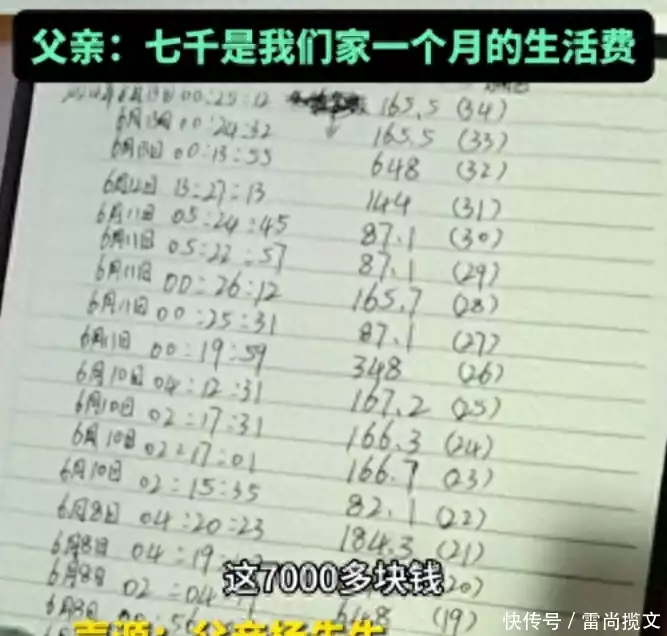 父亲：七千是我们家一个月的生活费
6月13日 00:25:12 165.5 (34)
6月13日 00:24:32 165.5 (33)
6月13日 00:13:55 648 (32)
6月12日 13:27:13 144 (31)
6月11日 05:24:45 87.1 (30)
6月11日 05:22:57 87.1 (29)
6月11日 00:26:12 165.7 (28)
6月11日 00:25:31 87.1 (27)
6月11日 00:19:59 348 (26)
6月10日 04:12:31 167.2 (25)
6月10日 02:17:31 166.3 (24)
6月10日 02:17:01 166.7 (23)
6月10日 02:15:35 82.1 (22)
6月8日 04:20:23 184.3 (21)
6月8日 04:19
6月8日 02:04 (20)
6月8日 (19)
这7000多块钱
声源：父亲杨先生
快传号/雷尚揽文